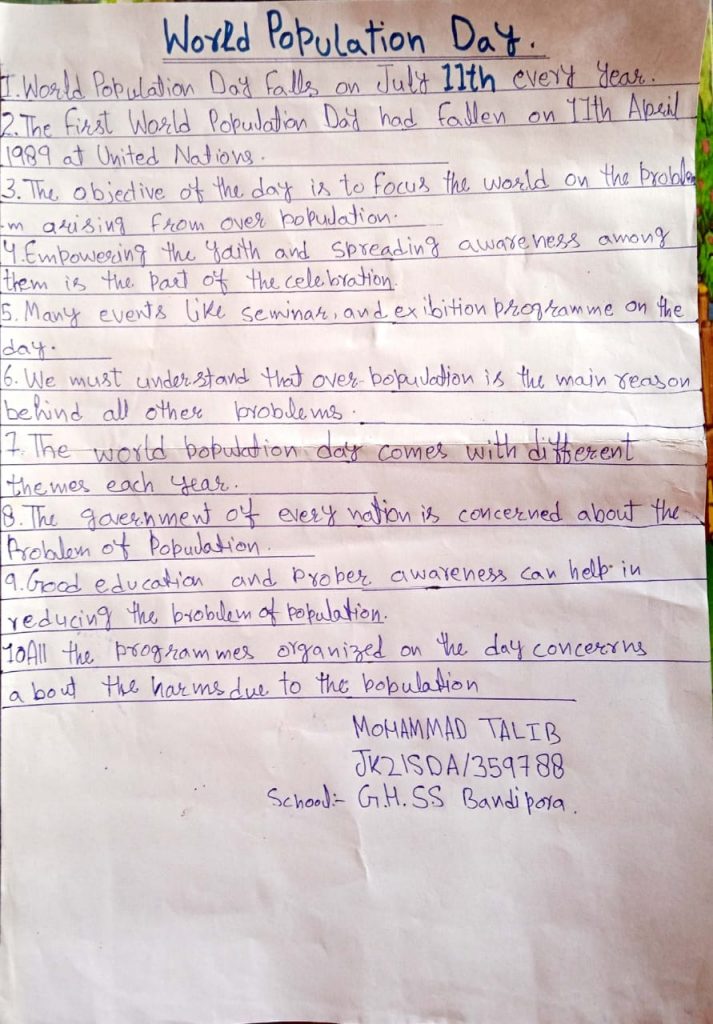 World Population Day.
1. World Population Day Falls on July 11th every Year.
2. The first World Population Day had fallen on 11th April
1989 at United Nations.
3. The objective of the day is to focus the world on the proble
-m arising from over population.
4. Empowering the yaith and spreading awareness among
them is the part of the celebration.
5. Many events like seminar, and exibition programme on the
day.
6. We must understand that over-population is the main reason
behind all other problems.
7. The world population day comes with different
themes each year.
8. The government of every nation is concerned about the
Problem of Population.
9. Good education and proper awareness can help in
reducing the problem of population.
10 All the programmes organized on the day concerns
about the harms due to the population
MOHAMMAD TALIB
JK21SDA/359788
School:- G.H.SS Bandipora.